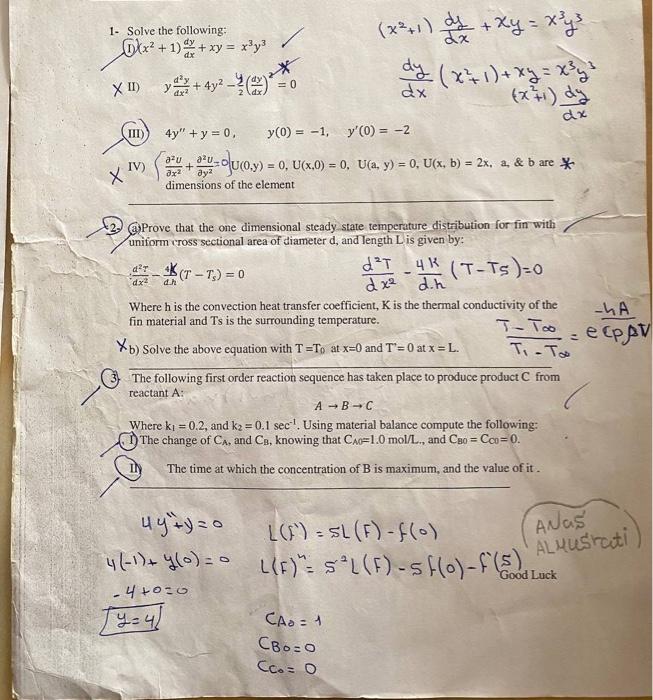 1- Solve the following:
I) (x² + 1) dy/dx + xy = x³y³ ✓
(x²+1) dy/dx + xy = x³y³
dy/dx (x²+1) + xy = x³y³
(x²+1) dy/dx
X II) y d²y/dx² + 4y² - y/2 (dy/dx)² = 0
III) 4y" + y = 0, y(0) = -1, y'(0) = -2
X IV) [∂²U/∂x² + ∂²U/∂y² = 0] U(0,y) = 0, U(x,0) = 0, U(a, y) = 0, U(x, b) = 2x, a, & b are
dimensions of the element
2- a) Prove that the one dimensional steady state temperature distribution for fin with
uniform cross sectional area of diameter d, and length L is given by:
d²T/dx² - 4K/d.h (T - Ts) = 0
d²T/dx² - 4K/d.h (T-Ts)=0
Where h is the convection heat transfer coefficient, K is the thermal conductivity of the
fin material and Ts is the surrounding temperature.
T-T∞/T₁-T∞ = e -hA/ρβV
X b) Solve the above equation with T =T₀ at x=0 and T'= 0 at x = L.
3- The following first order reaction sequence has taken place to produce product C from
reactant A:
A → B → C
Where k₁ = 0.2, and k₂ = 0.1 sec⁻¹. Using material balance compute the following:
I) The change of CA, and CB, knowing that CA0=1.0 mol/L., and CB0 = CC0 = 0.
II) The time at which the concentration of B is maximum, and the value of it .
4y"+y=0
L(f') = SL(F) - f(0)
ANaS
ALMUSrati
4(-1)+ y(0) = 0
L(F)" = S²L(F) - S f(0) - f'(S)
Good Luck
-4+0=0
y=4
CA0 = 1
CB0=0
CC0= 0